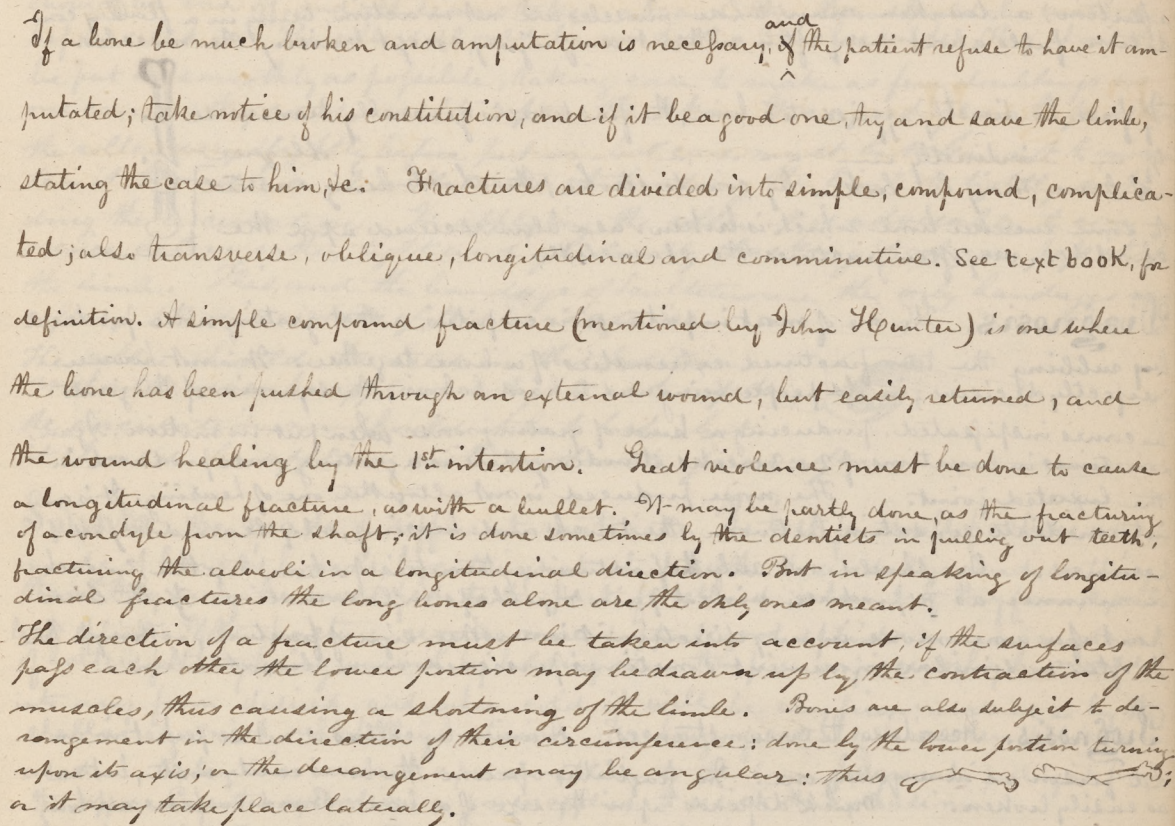 If a bone be much broken and amputation is necessary, and the patient refuse to have it am-
putated; take notice of his constitution, and if it be a good one, try and save the limb,
stating the case to him, &c: Fractures are divided into simple, compound, complica-
ted; also transverse, oblique, longitudinal and comminutive. See text book, for
definition. A simple compound fracture (mentioned by John Hunter) is one where
the bone has been pushed through an external wound, but easily returned, and
the wound healing by the 1st intention. Great violence must be done to cause
a longitudinal fracture, as with a bullet. It may be partly done, as the fracturing
of a condyle from the shaft; it is done sometimes by the dentists in pullig out teeth,
fracturing the alveoli in a longitudinal direction. But in speaking of longitu-
dinal fractures the long bones alone are the only ones meant.
The direction of a fracture must be taken into account, if the surfaces
pass each other the lower portion may be drawn up by the contraction of the
muscles, thus causing a shortning of the limb. Bones are also subject to de-
rangement in the direction of their circumference: done by the lower portion turning
upon its axis; or the derangement may be angular: thus
or it may take place laterally.